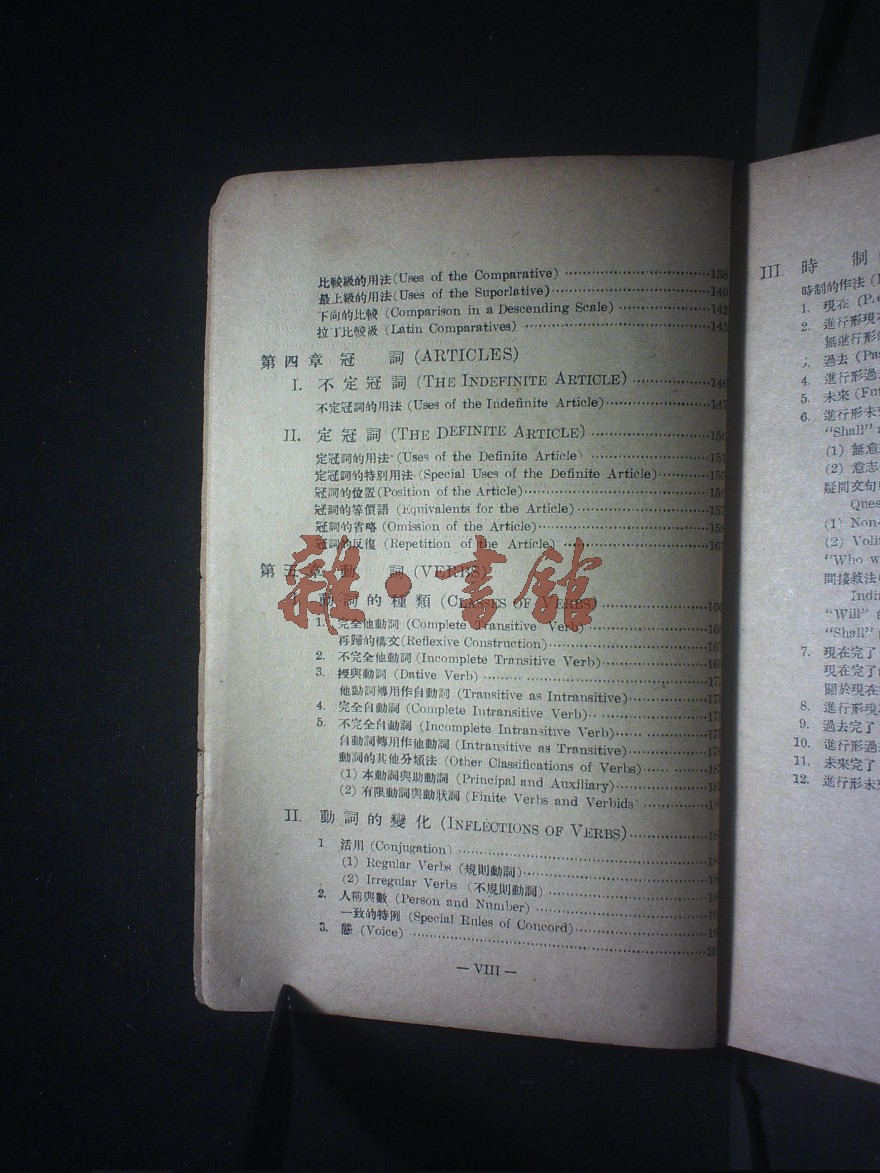 比較級的用法 (Uses of the Comparative) 138
最上級的用法 (Uses of the Superlative) 140
下向的比較 (Comparison in a Descending Scale) 142
拉丁比較級 (Latin Comparatives) 143
第四章 冠 詞 (ARTICLES)
I. 不定冠詞 (THE INDEFINITE ARTICLE) 146
不定冠詞的用法 (Uses of the Indefinite Article) 147
II. 定冠詞 (THE DEFINITE ARTICLE) 150
定冠詞的用法 (Uses of the Definite Article) 151
定冠詞的特別用法 (Special Uses of the Definite Article) 155
冠詞的位置 (Position of the Article) 156
冠詞的等價語 (Equivalents for the Article) 157
冠詞的省略 (Omission of the Article) 158
冠詞的反復 (Repetition of the Article)
第五章 動 詞 (VERBS)
I. 動詞的種類 (CLASSES OF VERBS)
1. 完全他動詞 (Complete Transitive Verb)
再歸的構文 (Reflexive Construction)
2. 不完全他動詞 (Incomplete Transitive Verb)
3. 授與動詞 (Dative Verb)
他動詞轉用作自動詞 (Transitive as Intransitive)
4. 完全自動詞 (Complete Intransitive Verb)
5. 不完全自動詞 (Incomplete Intransitive Verb)
自動詞轉用作他動詞 (Intransitive as Transitive)
動詞的其他分類法 (Other Classifications of Verbs)
(1) 本動詞與助動詞 (Principal and Auxiliary)
(2) 有限動詞與動狀詞 (Finite Verbs and Verbids)
II. 動詞的變化 (INFLECTIONS OF VERBS)
1 活用 (Conjugation)
(1) Regular Verbs (規則動詞)
(2) Irregular Verbs (不規則動詞)
2. 人稱與數 (Person and Number)
一致的特例 (Special Rules of Concord)
3. 態 (Voice)
— VIII —
雜·書館
III 時 制
時制的作法
1. 現在
2. 進行形現
無進行形
過去
4. 進行形過
5. 未來 (Fut
6. 進行形未
"Shall"
(1) 無意
(2) 意志
疑問文句
Ques
(1) Non-
(2) Voli
"Who w
間接敘法
Indi
"Will"
"Shall"
7. 現在完了
現在完了
關於現在
8. 進行形現
9. 過去完了
10. 進行形過
11. 未來完了
12. 進行形未